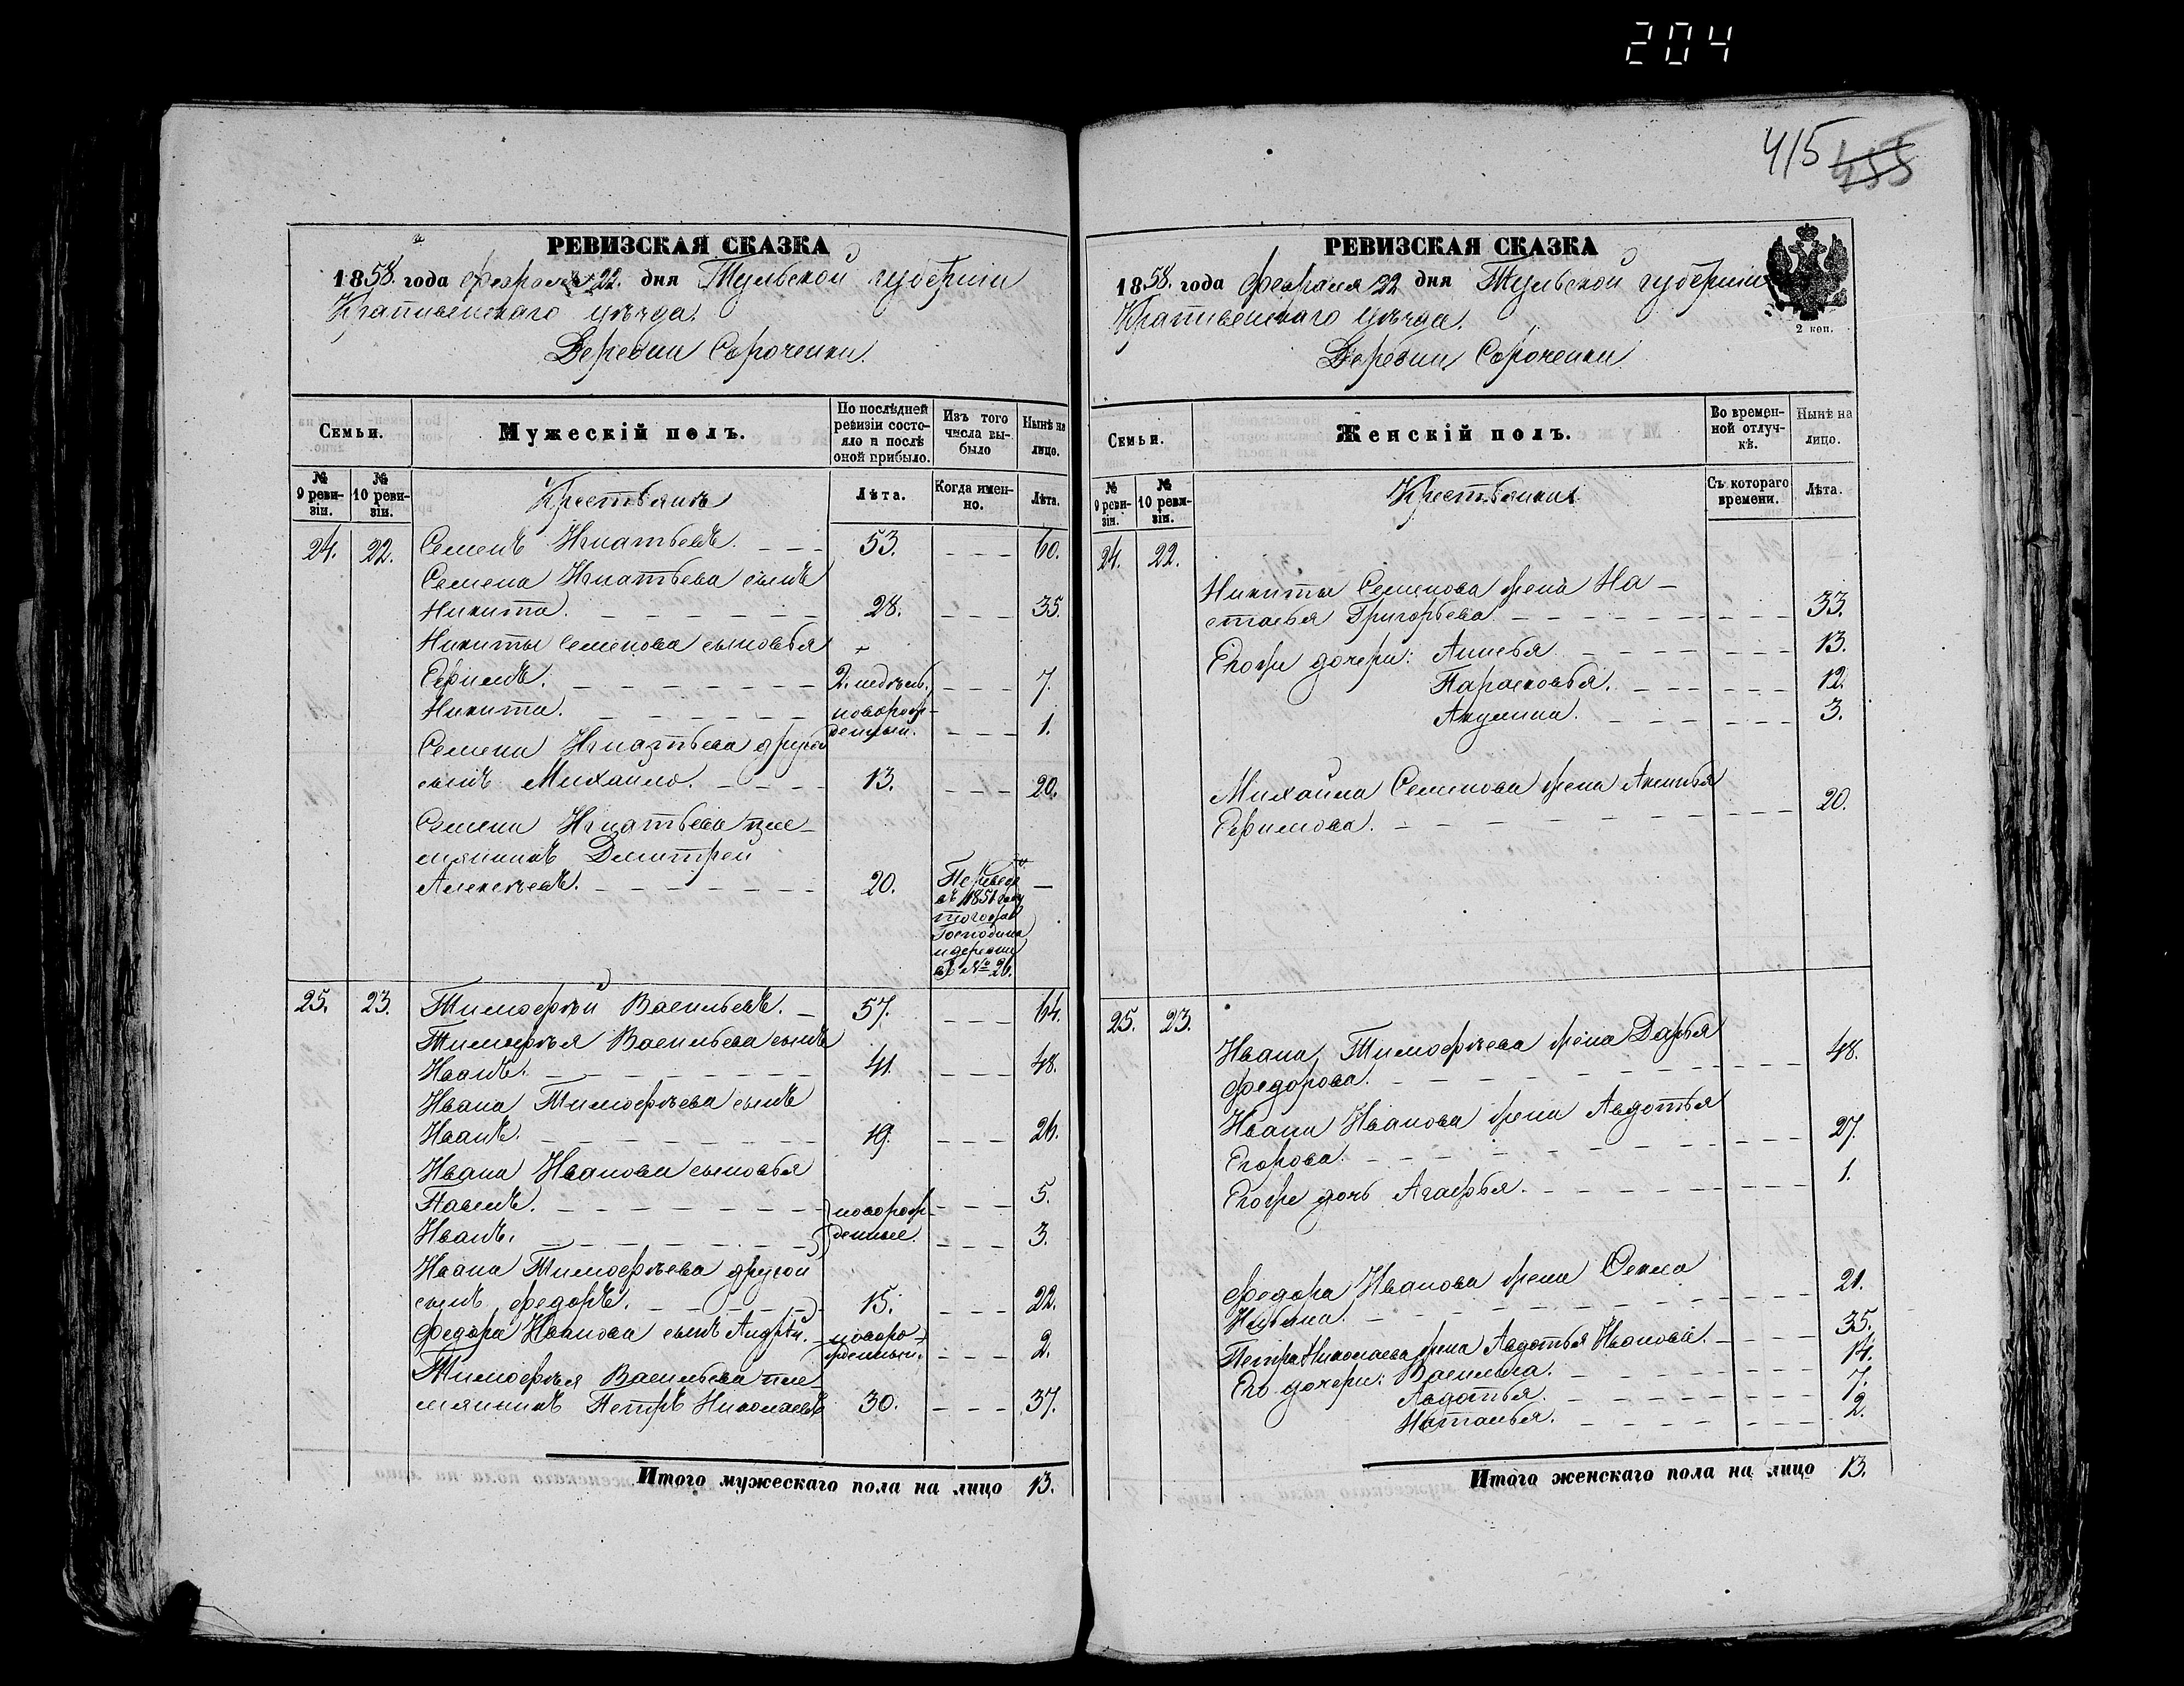 204
415 455
РЕВИЗСКАЯ СКАЗКА
1858. года Февраля 22. дня Тульской губерніи
Крапивенскаго уѣзда.
Деревни Сороченки.
Семьи.
Мужескій полъ.
По послѣдней ревизіи состояло и послѣ оной прибыло.
Изъ того числа выбыло
Нынѣ на лицо.
№ 9 ревизіи.
№ 10 ревизіи.
Крестьяне
Лѣта.
Когда именно.
Лѣта.
24. 22. Семенъ Игнатьевъ. 53. 60.
Семена Игнатьева сынъ
Никита. 28. 35.
Никиты Семенова сыновья
Ефимъ. 2. недѣль. 7.
Никита. новорож-
денный. 1.
Семена Игнатьева другой
сынъ Михайло. 13. 20.
Семена Игнатьева пле-
мянникъ Дмитрей
Алексѣевъ. 20. Перевед.
въ 1851 году
тогожъ
Господина
и деревни
въ № 20.
25. 23. Тимофѣй Васильевъ. 57. 64.
Тимофѣя Васильева сынъ
Иванъ. 41. 48.
Ивана Тимофѣева сынъ
Иванъ. 19. 26.
Ивана Иванова сыновья
Павелъ. новорож- 5.
Иванъ. денные. 3.
Ивана Тимофѣева другой
сынъ Федоръ. 15. 22.
Федора Иванова сынъ Андрей. новоро-
жденный. 2.
Тимофѣя Васильева пле-
мянникъ Петръ Николаевъ 30. 37.
Итого мужескаго пола на лицо 13.
РЕВИЗСКАЯ СКАЗКА
1858. года Февраля 22 дня Тульской губерніи
Крапивенскаго уѣзда.
2 коп.
Деревни Сороченки
Семьи.
Женскій полъ.
Во временной отлучкѣ.
Нынѣ на лицо.
№ 9 ревизіи.
№ 10 ревизіи.
Крестьянки
Съ котораго времени.
Лѣта.
24. 22.
Никиты Семенова жена На-
стасья Григорьева 33.
Егоже дочери: Анисья 13.
Парасковья. 12.
Акулина. 3.
Михайла Семенова жена Аксинья
Ефимова. 20.
25. 23.
Ивана Тимофѣева жена Дарья
Федорова. 48.
Ивана Иванова жена Авдотья
Егорова. 27.
Егоже дочь Агафья. 1.
Федора Иванова жена Секла
21.
Петра Николаева жена Авдотья Иванова. 35.
Его дочери: Василиса. 14.
Авдотья. 7.
Наталья. 2.
Итого женскаго пола на лицо 13.